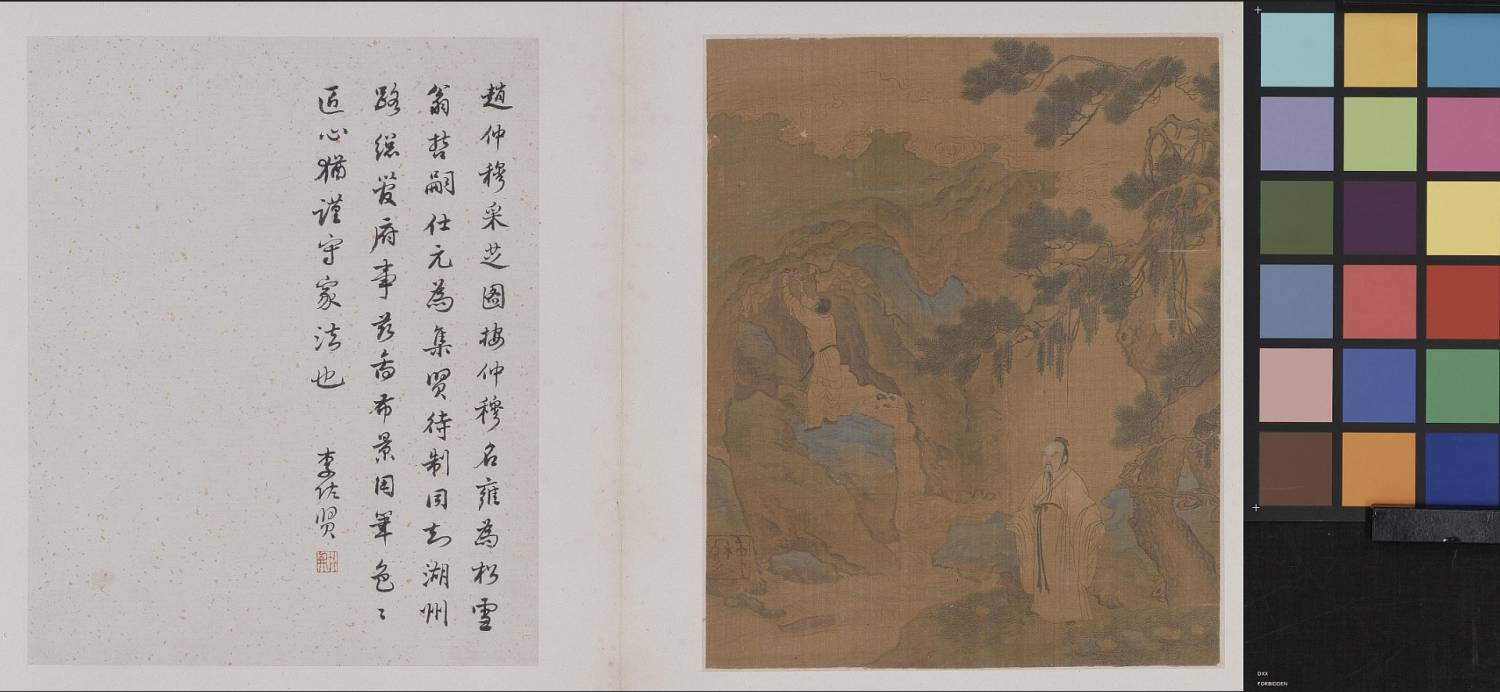 趙仲穆采芝图按仲穆名雍為松雪
翁哲嗣仕元為集賢待制同知湖州
路総管府事茲畜布景用筆色〻
匠心猶謹守家法也
李佐賢
DXX
FORBIDDEN